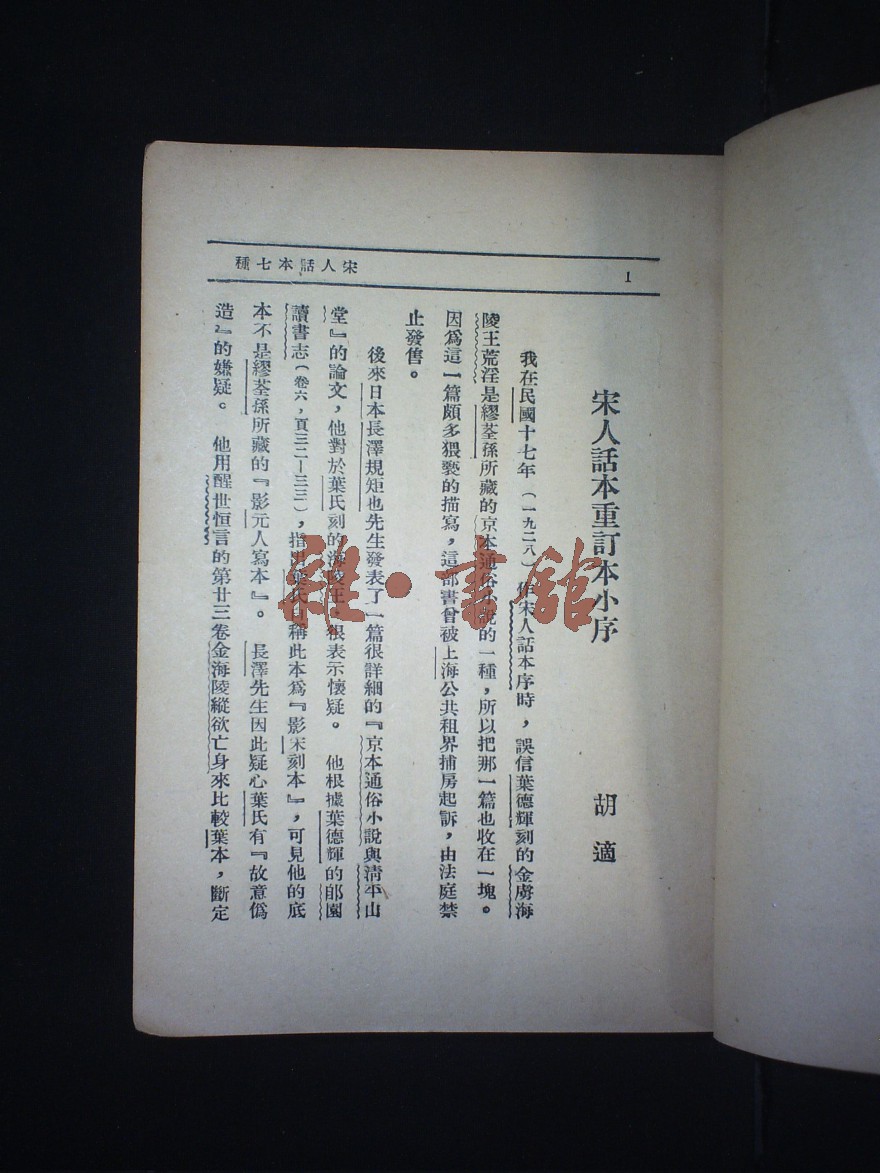 宋人話本七種
1
宋人話本重訂本小序
胡適
我在民國十七年(一九二八)作宋人話本序時,誤信葉德輝刻的金虜海
陵王荒淫是繆荃孫所藏的京本通俗小說的一種,所以把那一篇也收在一塊。
因爲這一篇頗多猥褻的描寫,這部書曾被上海公共租界捕房起訴,由法庭禁
止發售。
後來日本長澤規矩也先生發表了一篇很詳細的『京本通俗小說與清平山
堂』的論文,他對於葉氏刻的海陵王,很表示懷疑。他根據葉德輝的郋園
讀書志(卷六,頁三二—三三),指出葉氏自稱此本爲『影宋刻本』,可見他的底
本不是繆荃孫所藏的『影元人寫本』。長澤先生因此疑心葉氏有『故意僞
造』的嫌疑。他用醒世恒言的第廿三卷金海陵縱欲亡身來比較葉本,斷定
雜·書館